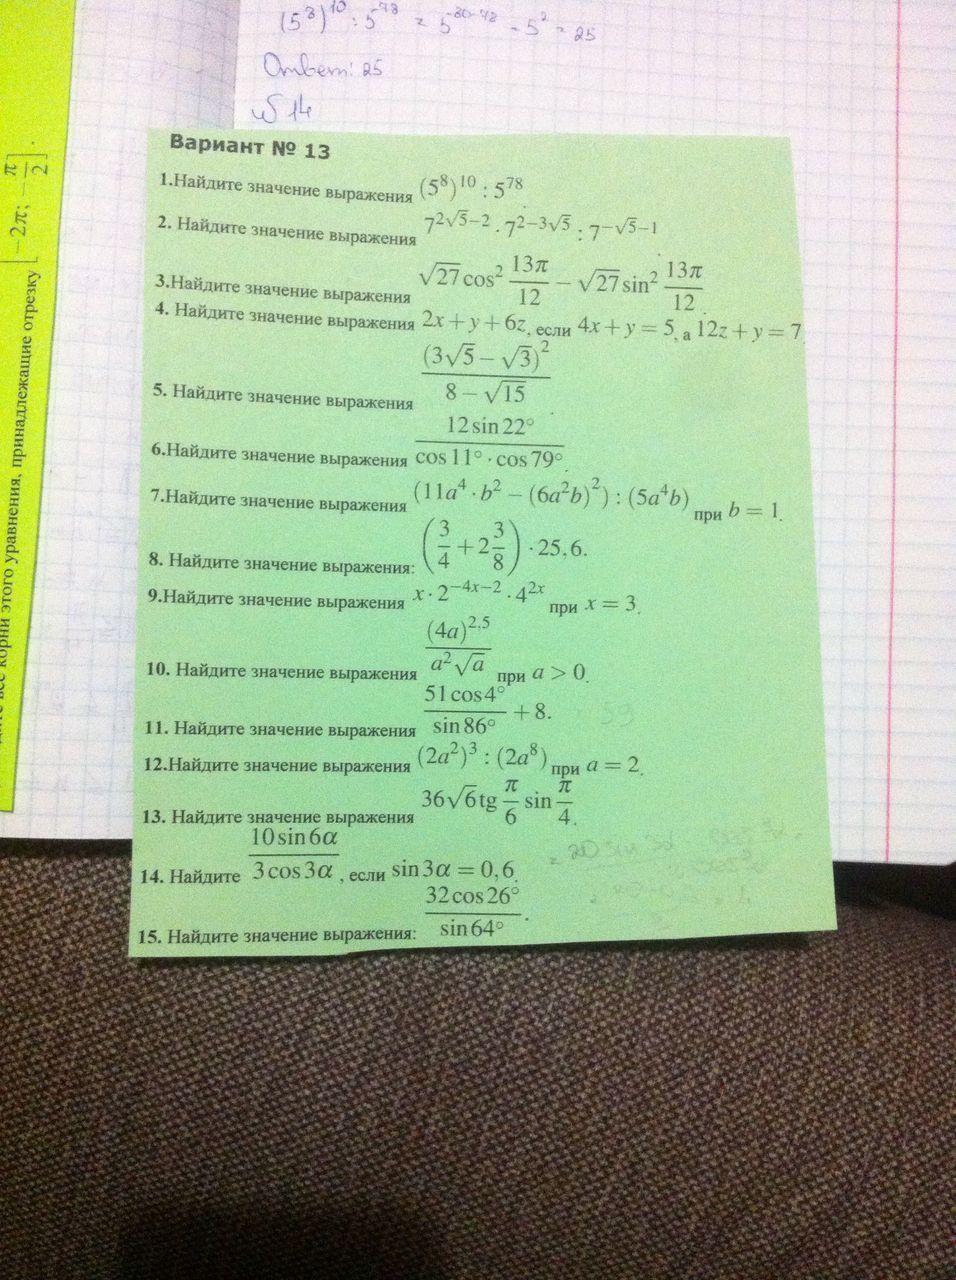 (5⁸)¹⁰ : 5⁷⁸ = 5⁸⁰⁻⁷⁸ = 5² = 25
Ответ: 25
№ 14
Вариант № 13
1.Найдите значение выражения (5⁸)¹⁰ : 5⁷⁸.
2. Найдите значение выражения 7^{2√5−2} · 7^{2−3√5} : 7^{−√5−1}
3.Найдите значение выражения √27 cos² 13π/12 − √27 sin² 13π/12.
4. Найдите значение выражения 2x + y + 6z, если 4x + y = 5, а 12z + y = 7.
5. Найдите значение выражения (3√5 − √3)² / (8 − √15)
6.Найдите значение выражения 12 sin 22° / (cos 11° · cos 79°).
7.Найдите значение выражения (11a⁴ · b² − (6a²b)²) : (5a⁴b) при b = 1.
8. Найдите значение выражения: (3/4 + 2 3/8) · 25,6.
9.Найдите значение выражения x · 2^{−4x−2} · 4^{2x} при x = 3.
10. Найдите значение выражения (4a)^{2,5} / (a²√a) при a > 0.
11. Найдите значение выражения 51 cos 4° / sin 86° + 8.
12.Найдите значение выражения (2a²)³ : (2a⁸) при a = 2.
13. Найдите значение выражения 36√6 tg π/6 sin π/4.
14. Найдите 10 sin 6α / 3 cos 3α, если sin 3α = 0,6.
15. Найдите значение выражения: 32 cos 26° / sin 64°.
все корни этого уравнения, принадлежащие отрезку [−2π; −π/2].